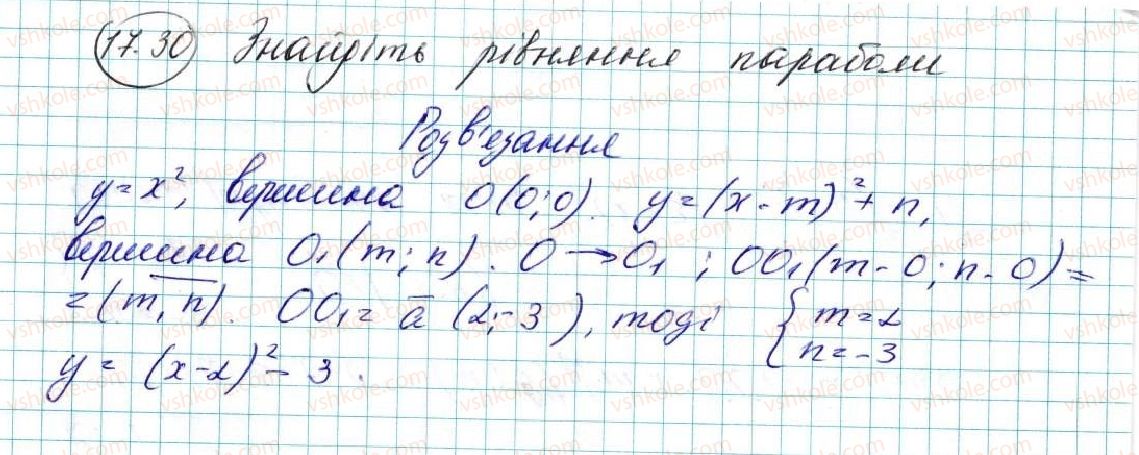 17.30 Знайдіть рівняння параболи
Розв'язання
y=x², вершина O(0;0). y=(x-m)²+n,
вершина O₁(m;n). O→O₁; OO₁(m-0; n-0)=
=(m,n). OO₁= a̅ (2;-3), тоді { m=2
n=-3
y= (x-2)²- 3.